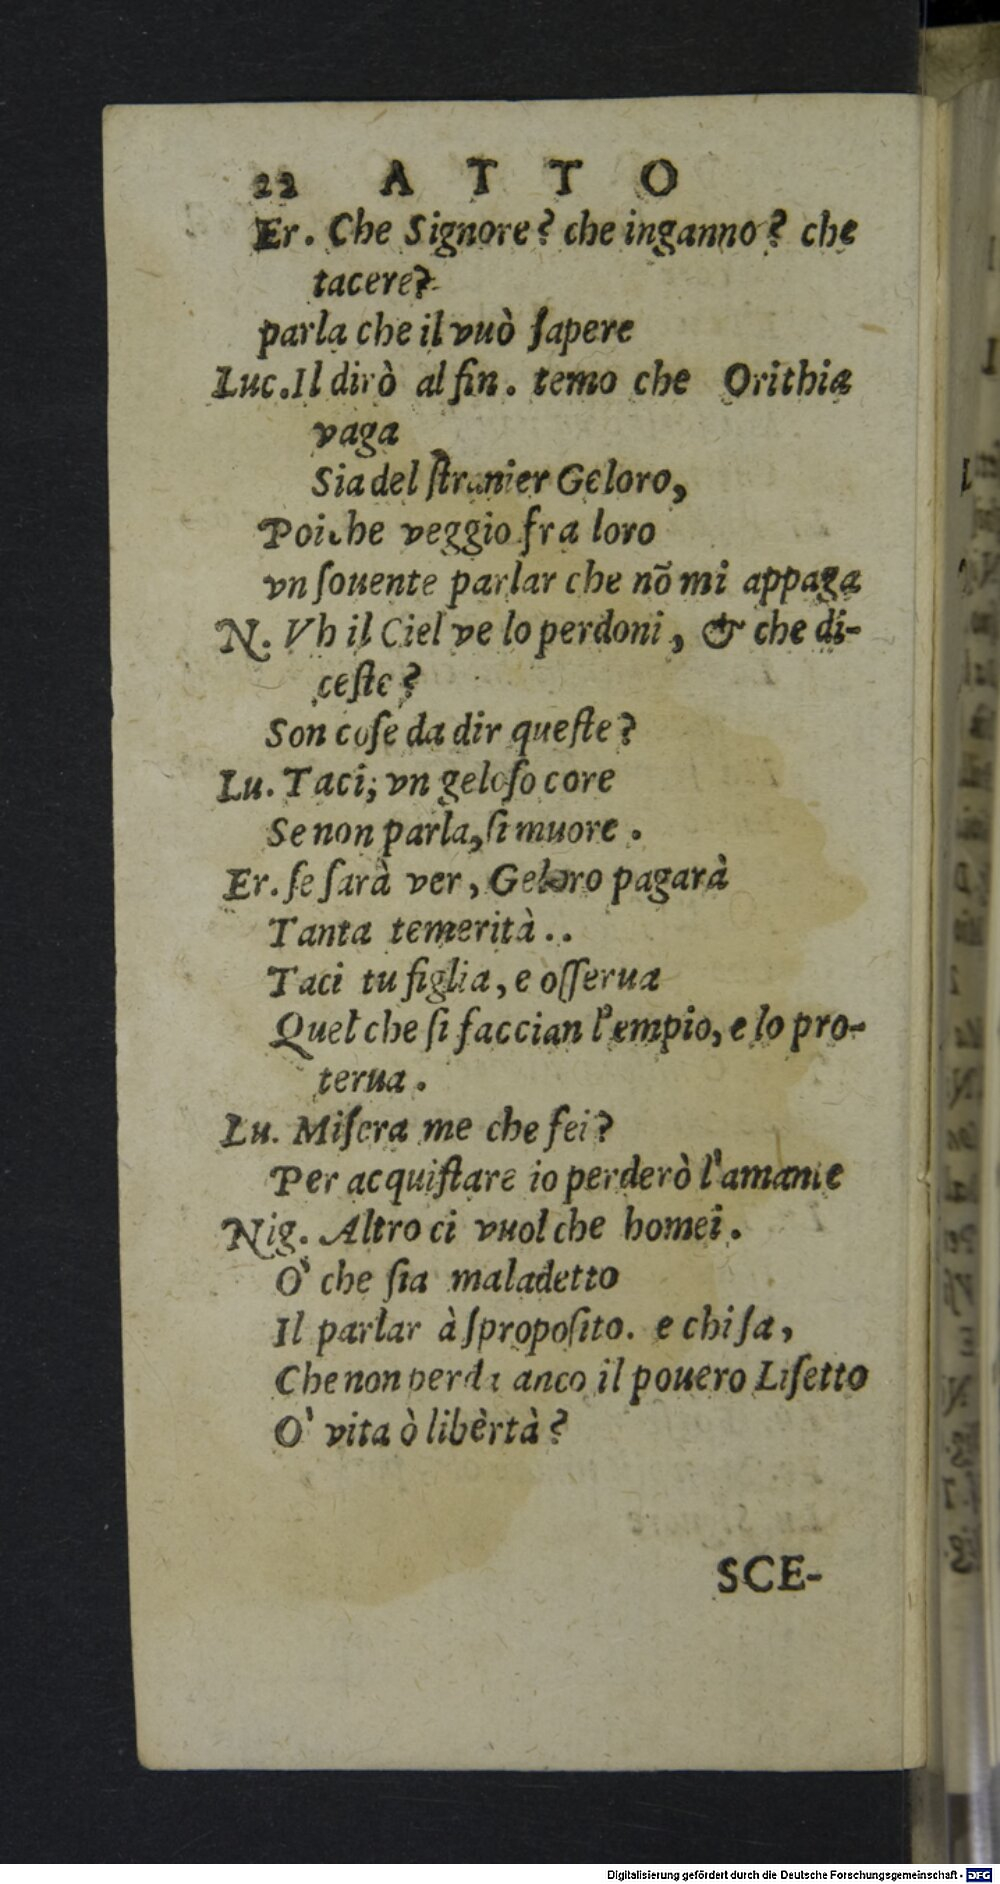 22 ATTO
Er. Che Signore? che inganno? che
tacere?
parla che il vuò ſapere
Luc. Il dirò al fin. temo che Orithia
vaga
Sia del ſtranier Geloro,
Poiche veggio fra loro
vn ſouente parlar che nõ mi appaga
N. Vh il Ciel ve lo perdoni, & che di-
ceſte?
Son coſe da dir queſte?
Lu. Taci; vn geloſo core
Se non parla, ſi muore.
Er. ſe ſarà ver, Geloro pagarà
Tanta temerità..
Taci tu figlia, e oſſerua
Quel che ſi faccian l'empio, e lo pro-
terua.
Lu. Miſera me che fei?
Per acquiſtare io perderò l'amante
Nig. Altro ci vuol che homei.
O' che ſia maladetto
Il parlar à ſpropoſito. e chi ſa,
Che non perda anco il pouero Liſetto
O' vita ò libèrtà?
SCE-
Digitalisierung gefördert durch die Deutsche Forschungsgemeinschaft - DFG